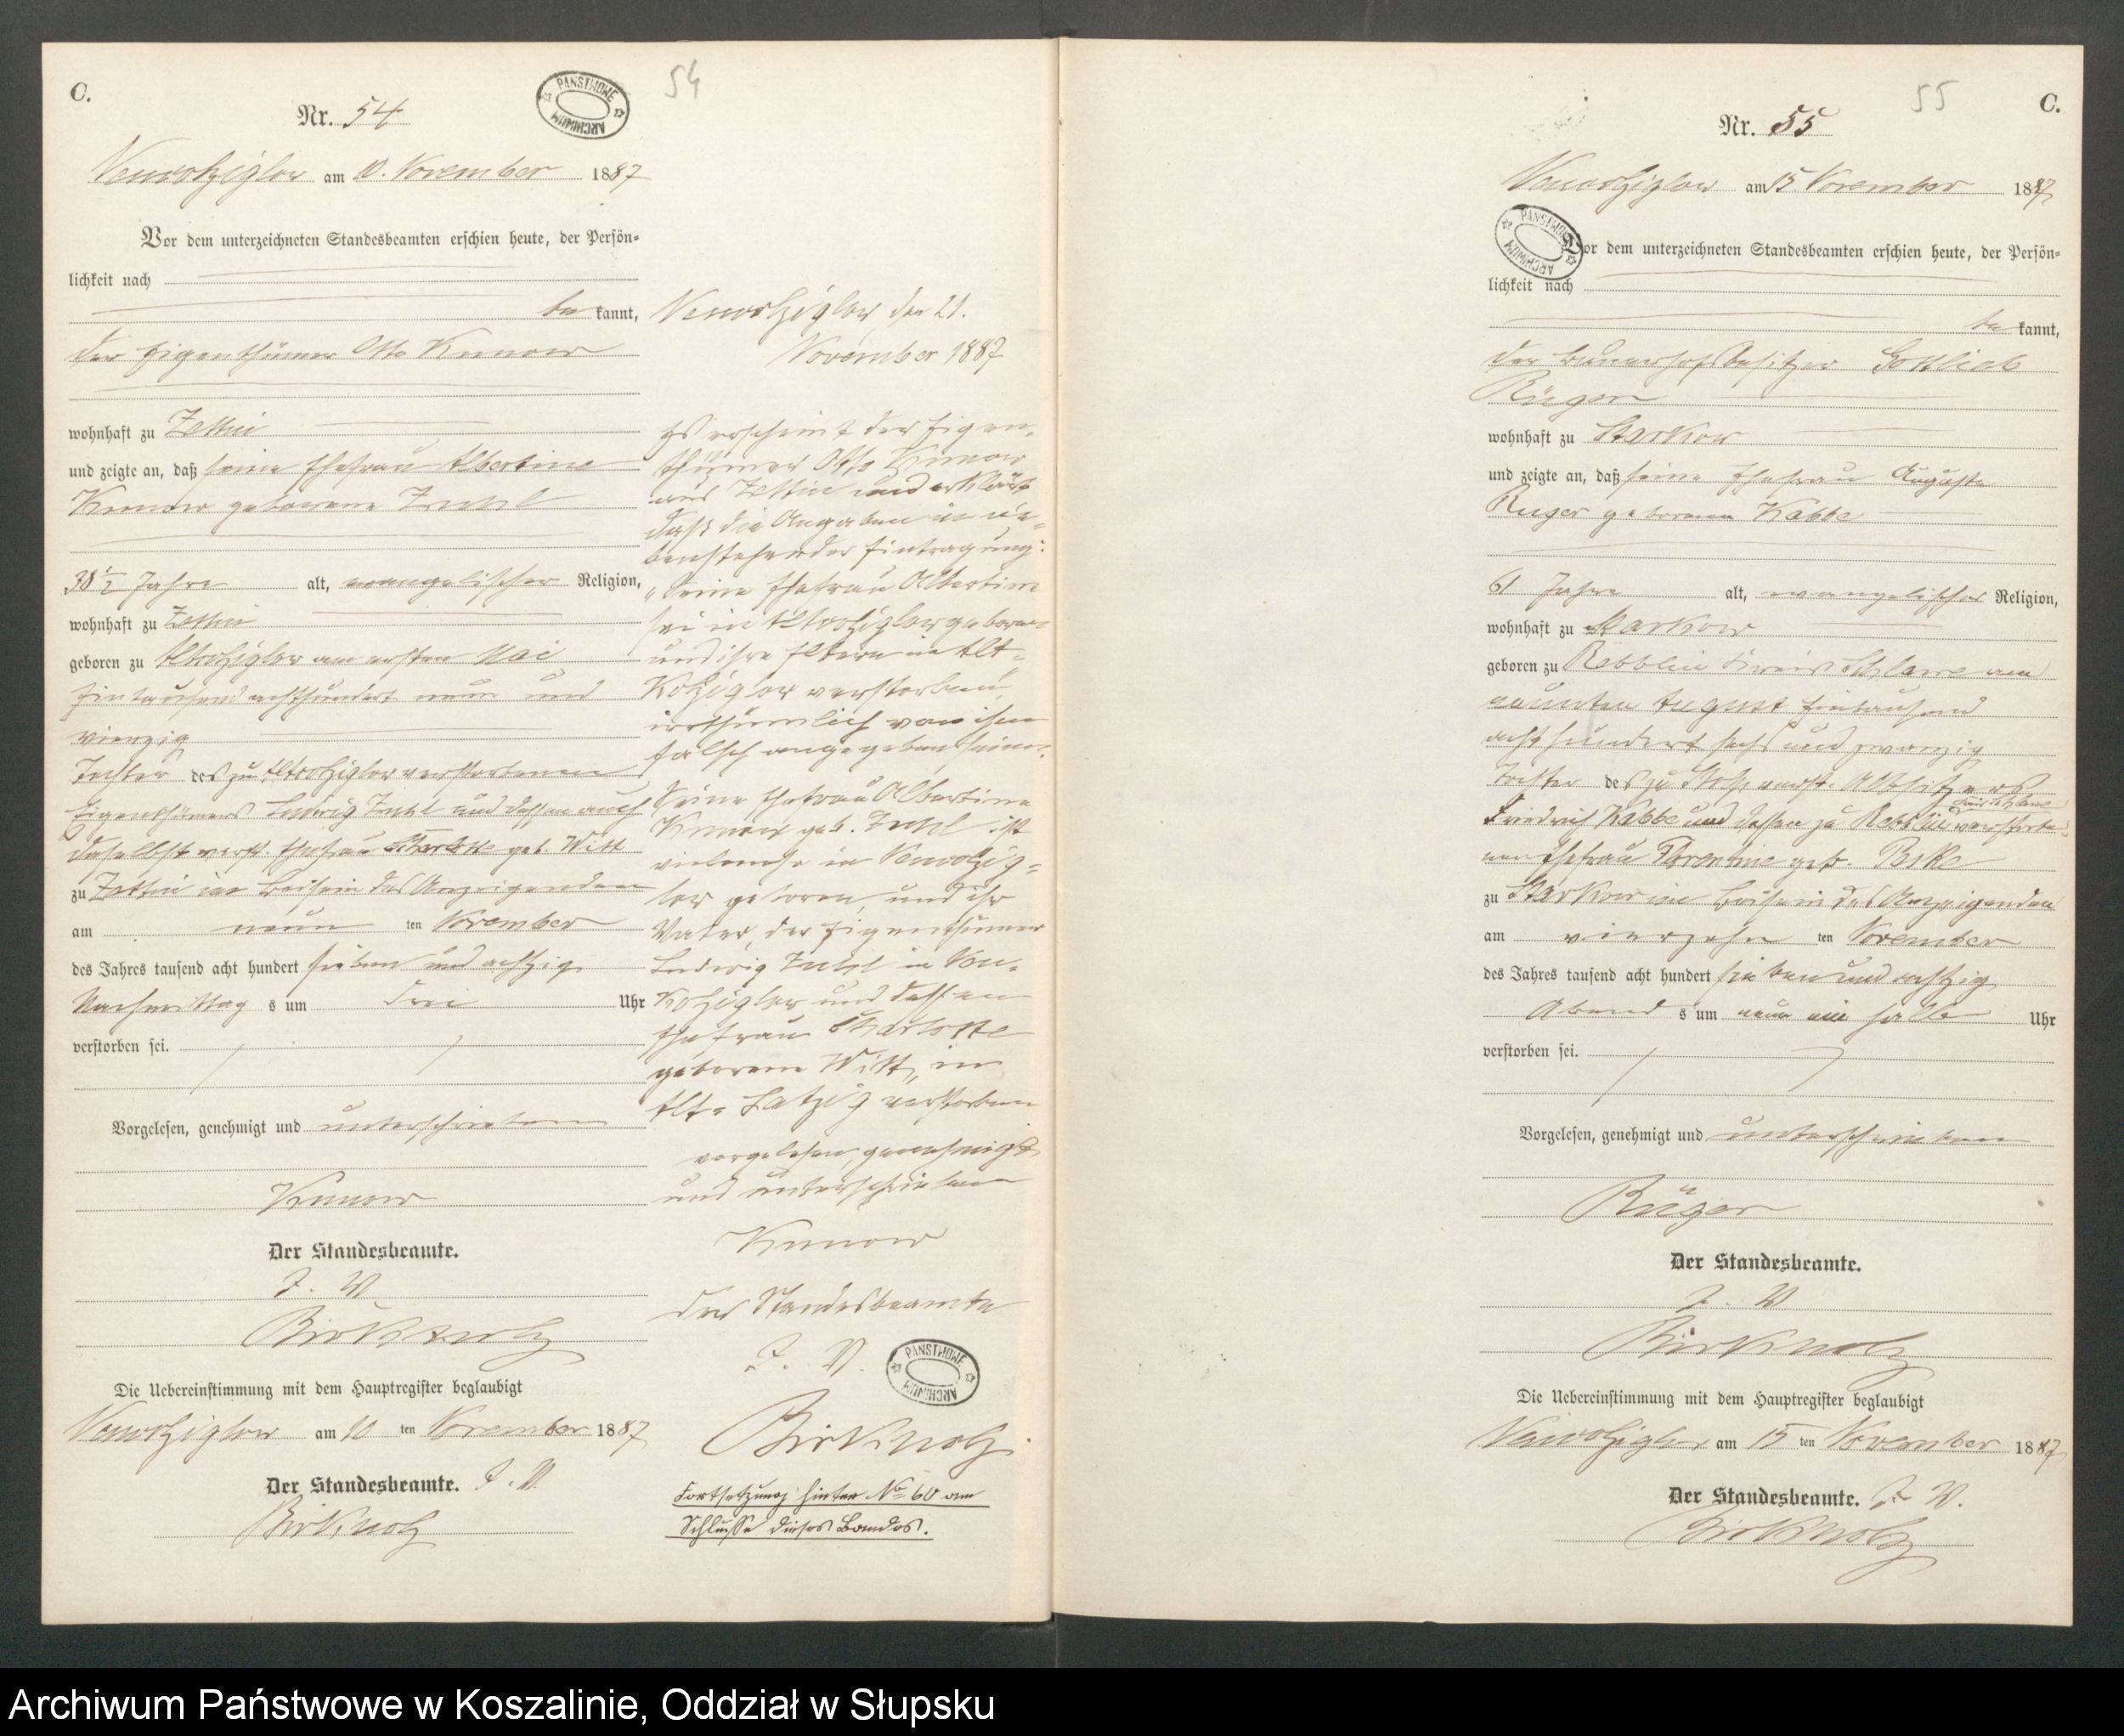 C.
Nr. 54
PANSTWOWE ARCHIWUM
54
Neukolziglow am 10. November 1887
Vor dem unterzeichneten Standesbeamten erschien heute, der Persön=
lichkeit nach
be kannt,
der Eigenthümer Otto Kunow
wohnhaft zu Zettin
und zeigte an, daß seine Ehefrau Albertine
Kunow geborene
38 1/2 Jahre alt, evangelischer Religion,
wohnhaft zu Zettin
geboren zu Altkolziglow am ersten Mai
Eintausend achthundert neun und
vierzig
Tochter des zu Altkolziglow verstorbenen
Eigenthümers Ludwig und dessen auch
daselbst verst. Ehefrau Charlotte geb. Witt
zu Zettin im Beisein des Anzeigenden
am neun ten November
des Jahres tausend acht hundert sieben und achtzig
Nachmittag s um drei Uhr
verstorben sei.
Vorgelesen, genehmigt und unterschrieben
Kunow
Der Standesbeamte.
J. V.
Birkholz
Die Uebereinstimmung mit dem Hauptregister beglaubigt
Neukolziglow am 10 ten November 1887
Der Standesbeamte. J. V.
Birkholz
Neukolziglow, den 21.
November 1887
Es erscheint der Eigen=
thümer Otto Kunow
aus Zettin und erklärt,
daß die Angaben in ne=
benstehender Eintragung:
"Seine Ehefrau Albertine
sei in Altkolziglow geboren
und ihre Eltern in Alt=
Kolziglow verstorben,
irrthümlich von ihm
falsch angegeben seien.
Seine Ehefrau Albertine
Kunow geb. ist
vielmehr in Neukolzig=
low geboren, und ihr
Vater, der Eigenthümer
Ludwig in Neu=
Kolziglow und dessen
Ehefrau Charlotte
geborene Witt, in
Alt= Latzig verstorben
vorgelesen, genehmigt
und unterschrieben
Kunow
Der Standesbeamte
J. V.
PANSTWOWE ARCHIWUM
Birkholz.
Fortsetzung hinter No 60 am
Schlusse dieses Bandes.
55
C.
Nr. 55
Neukolziglow am 15 November 1887
PANSTWOWE ARCHIWUM
Vor dem unterzeichneten Standesbeamten erschien heute, der Persön=
lichkeit nach
be kannt,
der Bauerhofsbesitzer Gottlieb
Rüger
wohnhaft zu Starkow
und zeigte an, daß seine Ehefrau Auguste
Rüger geborene Kabbe
61 Jahre alt, evangelischer Religion,
wohnhaft zu Starkow
geboren zu Kreis Schlawe am
neunten August Eintausend
achthundert sechs und zwanzig
Tochter des zu verst. Altsitzers
Friedrich Kabbe und dessen zu Kreis Schlawe verstorbe=
nen Ehefrau Florentine geb.
zu Starkow im Beisein des Anzeigenden
am vierzehn ten November
des Jahres tausend acht hundert sieben und achtzig
Abend s um neun ein halb Uhr
verstorben sei.
Vorgelesen, genehmigt und unterschrieben
Rüger
Der Standesbeamte.
J. V.
Birkholz
Die Uebereinstimmung mit dem Hauptregister beglaubigt
Neukolziglow am 15 ten November 1887
Der Standesbeamte. J. V.
Birkholz
Archiwum Państwowe w Koszalinie, Oddział w Słupsku